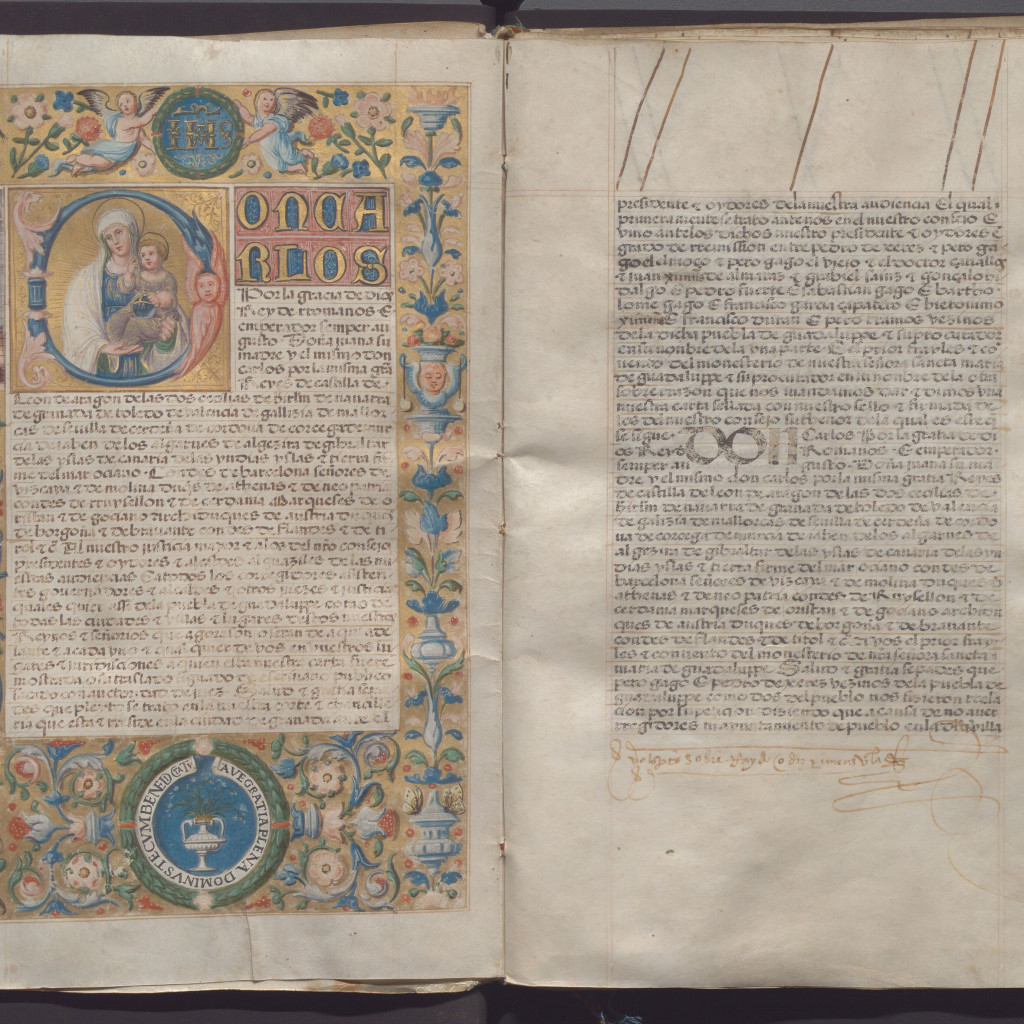 IHS
DON CA
RLOS
Por la gracia de dios
Rey de rromanos E
emperador semper au
gusto Doña juana su
madre y el mismo don
carlos por la misma gra
Reyes de castilla de
leon de aragon de las dos cecilias de hirlm de navarra
de granada de toledo de valencia de gallizia de mallor
cas de sevilla de cerdeña de cordova de corcega de mur
cia de jahen de los algarves de algezira de gibraltar
de las yslas de canaria de las yndias yslas & tierra fir
me del mar oceano Condes de barcelona señores de
vizcaya & de molina duqs de athenas & de neo patria
condes de rruysellon & de cerdania Marqueses de o
ristan & de gociano archiduques de austria duques
de borgoña & de bravante condes de flandes & de ti
rol & c Al nuestro justicia mayor & a los del nro consejo
presidentes & oydores & alcaldes alguaziles de las nu
estras audiencias E a todos los corregidores asisten
tes governadores & alcaldes & otros juezes & justicias
quales quier assi de la puebla de guadaluppe como de
todas las ciudades & villas & lugares destos nuestros
Reynos & señorios que agora son o seran de aqui ade
lante & a cada uno & qual quier de vos en vuestros lu
gares & juridiciones a quien esta nuestra carta fuere
mostrada o su traslado signado de escrivano publico
sacado con auctoridad de juez Salud & gracia sepa
des que pleyto se trato en la nuestra corte & chancille
ria que esta & rreside en la ciudad de granada ante el
AVE GRATIA PLENA DOMINVS TECVM BENEDICTA TV
presidente & oydores de la nuestra audiencia El qual
primeramente se trato ante nos en el nuestro consejo E
vino ante los dichos nuestro presidente & oydores E
grado de rremission entre pedro de xerez & pero ga
go el moço & pero gago el viejo & el doctor
& juan ximenes de almaraz & grabiel sains & gonçalo hi
dalgo E pedro fuerte E sabastian gago E bartho
lome gago E francisco garcia çapatero E hieronimo
ximenes E francisco duran E pero rramos vezinos
de la dicha puebla de guadaluppe & su procurador
en su nonbre de la una parte E el prior frayles & co
nvento del monesterio de nuestra señora sancta maria
de guadaluppe & su procurador en su nonbre de la otra
sobre razon que nos mandamos dar & dimos una
nuestra carta sellada con nuestro sello & firmada de
los del nuestro consejo su thenor de la qual es este q
se sigue Don Carlos Por la gracia de di
os Rey de Romanos E emperador
semper au gusto Doña juana su ma
dre y el mismo don carlos por la misma gracia Reyes
de castilla de leon de aragon de las dos cecilias de
hirlm de navarra de granada de toledo de valencia
de galizia de mallorcas de sevilla de cerdeña de cordo
va de corcega de murcia de jahen de los algarves de
algezira de gibraltar de las yslas de canaria de las yn
dias yslas & tierra firme del mar oceano condes de
barcelona señores de vizcaya & de molina duques de
athenas & de neo patria condes de Ruysellon & de
cerdania marqueses de oristan & de gociano archidu
ques de austria duques de borgoña & de bravante
condes de flandes & de tirol & c A vos el prior fray
les & convento del monesterio de nra señora sancta
maria de guadaluppe Salud & gracia sepades que
pero gago E pedro de xerez vezinos de la puebla de
guadaluppe como dos del pueblo nos hizieron rrela
cion por su peticion diziendo que a causa de no aver
rregidores ni ayuntamiento de pueblo en la dha villa